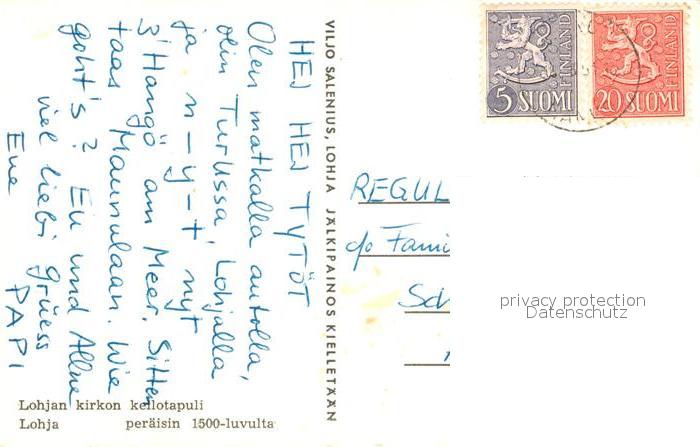 HEJ HEJ TYTÖT
Olen matkalla autolla,
olin Turussa, Lohjalla
ja n-y-t nyt
3' Hangö am Meer. Sitten
taas Maunulaan. Wie
goht's? Eu und Allne
viel liebi grüess
Eue PAPI
Lohjan kirkon kellotapuli
Lohja peräisin 1500-luvulta
VILJO SALENIUS, LOHJA JÄLKIPAINOS KIELLETÄÄN
5 SUOMI
FINLAND
20 SUOMI
FINLAND
REGUL
c/o Fami
Sch
privacy protection
Datenschutz